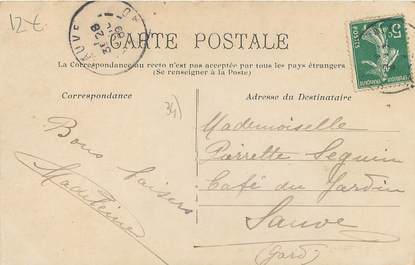 12 t.
SAUVE
28
CARTE POSTALE
5c
POSTES
La Correspondance au recto n'est pas acceptée par tous les pays étrangers
(Se renseigner à la Poste)
Correspondance
Adresse du Destinataire
34
Bons baisers
Madeleine
Mademoiselle
Pierrette Seguin
Café du Jardin
Sauve
(Gard)